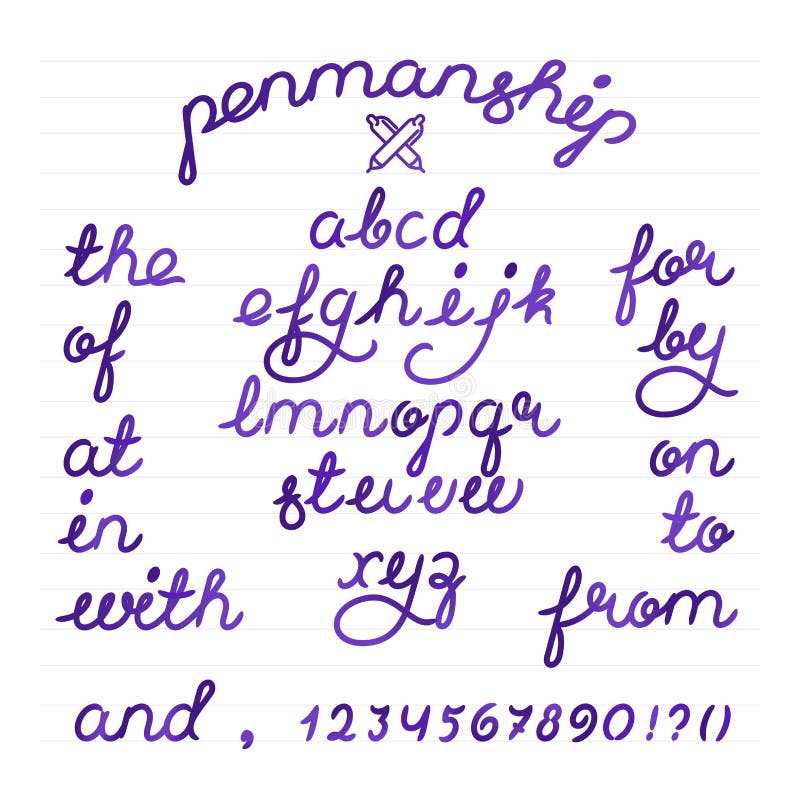 penmanship
abcd
the
for
efghijk
of
by
lmnopqr
at
on
stuvw
in
to
xyz
with
from
and , 1234567890!?()